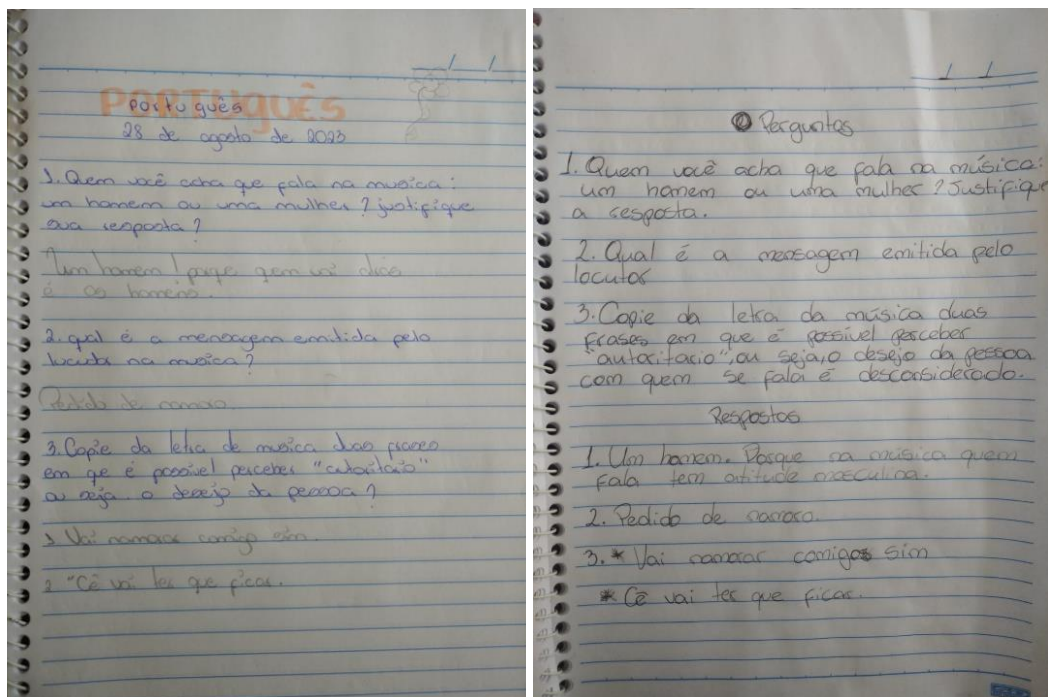 PORTUGUÊS
Português
28 de agosto de 2023
1. Quem você acha que fala na musica:
um homem ou uma mulher? justifique
sua resposta?
Um homem! porqe qem vai
é os homens.
2. qal é a mensagem emitida pelo
na musica?
Pedido de namoro.
3. Copie da letra de musica duas frases
em qe é possivel perceber
ou seja o desejo da pessoa?
1 Vai namorar comigo sim.
2 "Cê vai ter que ficar.
Perguntas
1. Quem você acha que fala na música:
um homem ou uma mulher? Justifique
a resposta.
2. Qual é a mensagem emitida pelo
locutor
3. Copie da letra da música duas
frases em que é possível perceber
"autoritario", ou seja, o desejo da pessoa
com quem se fala é desconsiderado.
Respostas
1. Um homem. Porque na música quem
fala tem atitude masculina.
2. Pedido de namoro.
3. * Vai namorar comigo sim
* Cê vai ter que ficar.